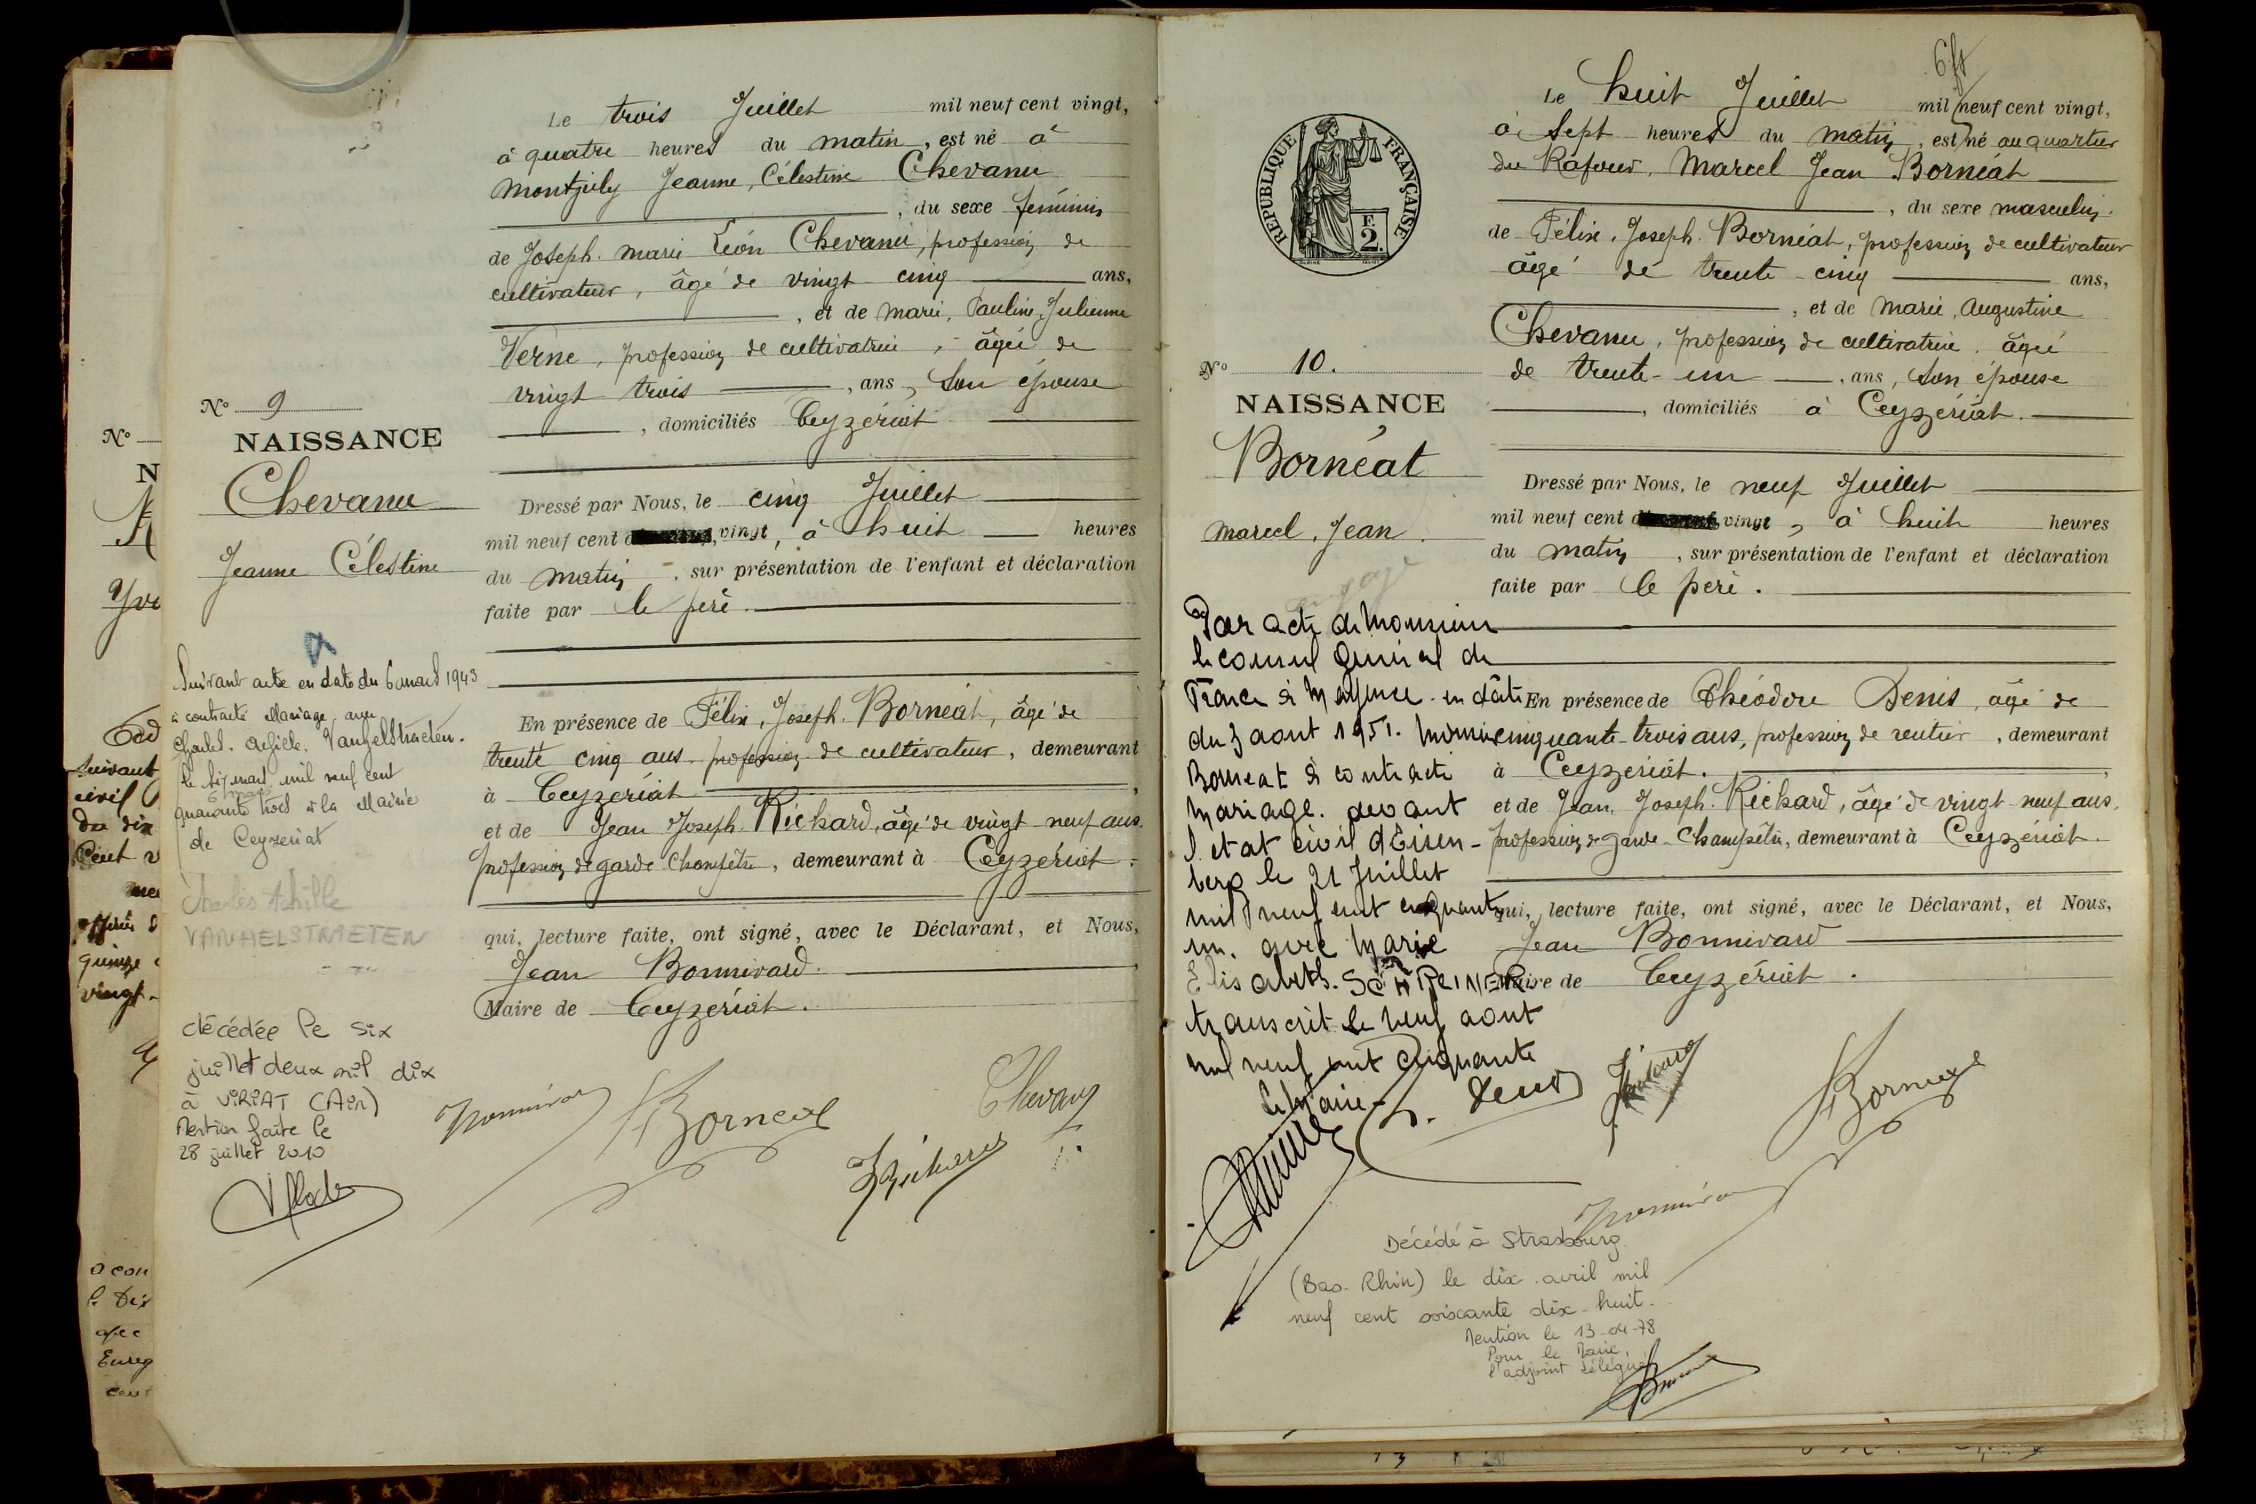 Le trois Juillet mil neuf cent vingt,
à quatre heures du matin, est né à
Montjuly Jeanne, Célestine Chevanu
, du sexe féminin
de Joseph. Marie Léon Chevanu, profession de
cultivateur, âgé de vingt cinq ans,
, et de Marie, Pauline, Julienne
Verne, profession de cultivatrice, âgée de
vingt trois , ans, son épouse
, domiciliés Ceyzériat
N° 9
NAISSANCE
Chevanu
Jeanne Célestine
Dressé par Nous, le cinq Juillet
mil neuf cent vingt, à huit heures
du matin, sur présentation de l'enfant et déclaration
faite par le père.
Suivant acte en date du 6 mars 1943
a contracté Mariage avec
Charles. Achille. Vanhelstraeten.
le six mars mil neuf cent
6 mars
quarante trois à la Mairie
de Ceyzériat
Charles Achille
VANHELSTRAETEN
En présence de Félix, Joseph. Bornéat, âgé de
trente cinq ans profession de cultivateur, demeurant
à Ceyzériat
et de Jean Joseph. Richard, âgé de vingt neuf ans.
profession de garde champêtre, demeurant à Ceyzériat.
qui, lecture faite, ont signé, avec le Déclarant, et Nous,
Jean Bonnivard.
Maire de Ceyzériat.
décédée le six
juillet deux mil dix
à VIRIAT (Ain)
Mention faite le
28 juillet 2010
Bonnivard
F Borneat
J Richard
Chevanu
6 ff
Le huit Juillet mil neuf cent vingt,
à sept heures du matin, est né au quartier
du Rafour, Marcel Jean Bornéat
, du sexe masculin.
de Félix, Joseph. Bornéat, profession de cultivateur
âgé de trente cinq ans,
, et de Marie, Augustine
Chevanu, profession de cultivatrice. âgée
de trente-un , ans, son épouse
, domiciliés à Ceyzériat.
REPUBLIQUE FRANÇAISE
F.
2.
N° 10.
NAISSANCE
Bornéat
Marcel, Jean.
Dressé par Nous, le neuf Juillet
mil neuf cent vingt, à huit heures
du matin, sur présentation de l'enfant et déclaration
faite par le père.
Par acte de Monsieur
le consul général de
France à Mayence en date
du 3 aout 1951.
Borneat à contracté
mariage. devant
l'etat civil d'Eisen-
berg le 21 Juillet
mil neuf cent cinquante
un. avec Marie
Elisabeth. SCHREINER
transcrit le neuf aout
mil neuf cent cinquante
le Maire
En présence de Théodore Denis, âgé de
cinquante-trois ans, profession de rentier, demeurant
à Ceyzériat.
et de Jean, Joseph. Richard, âgé de vingt-neuf ans,
profession de garde-champêtre, demeurant à Ceyzériat.
qui, lecture faite, ont signé, avec le Déclarant, et Nous,
Jean Bonnivard
Maire de Ceyzériat.
Denis
F Borneat
Bonnivard
Décédé à Strasbourg
(Bas-Rhin) le dix avril mil
neuf cent soixante dix-huit.
Mention le 13-04-78
Pour le Maire,
l'adjoint délégué